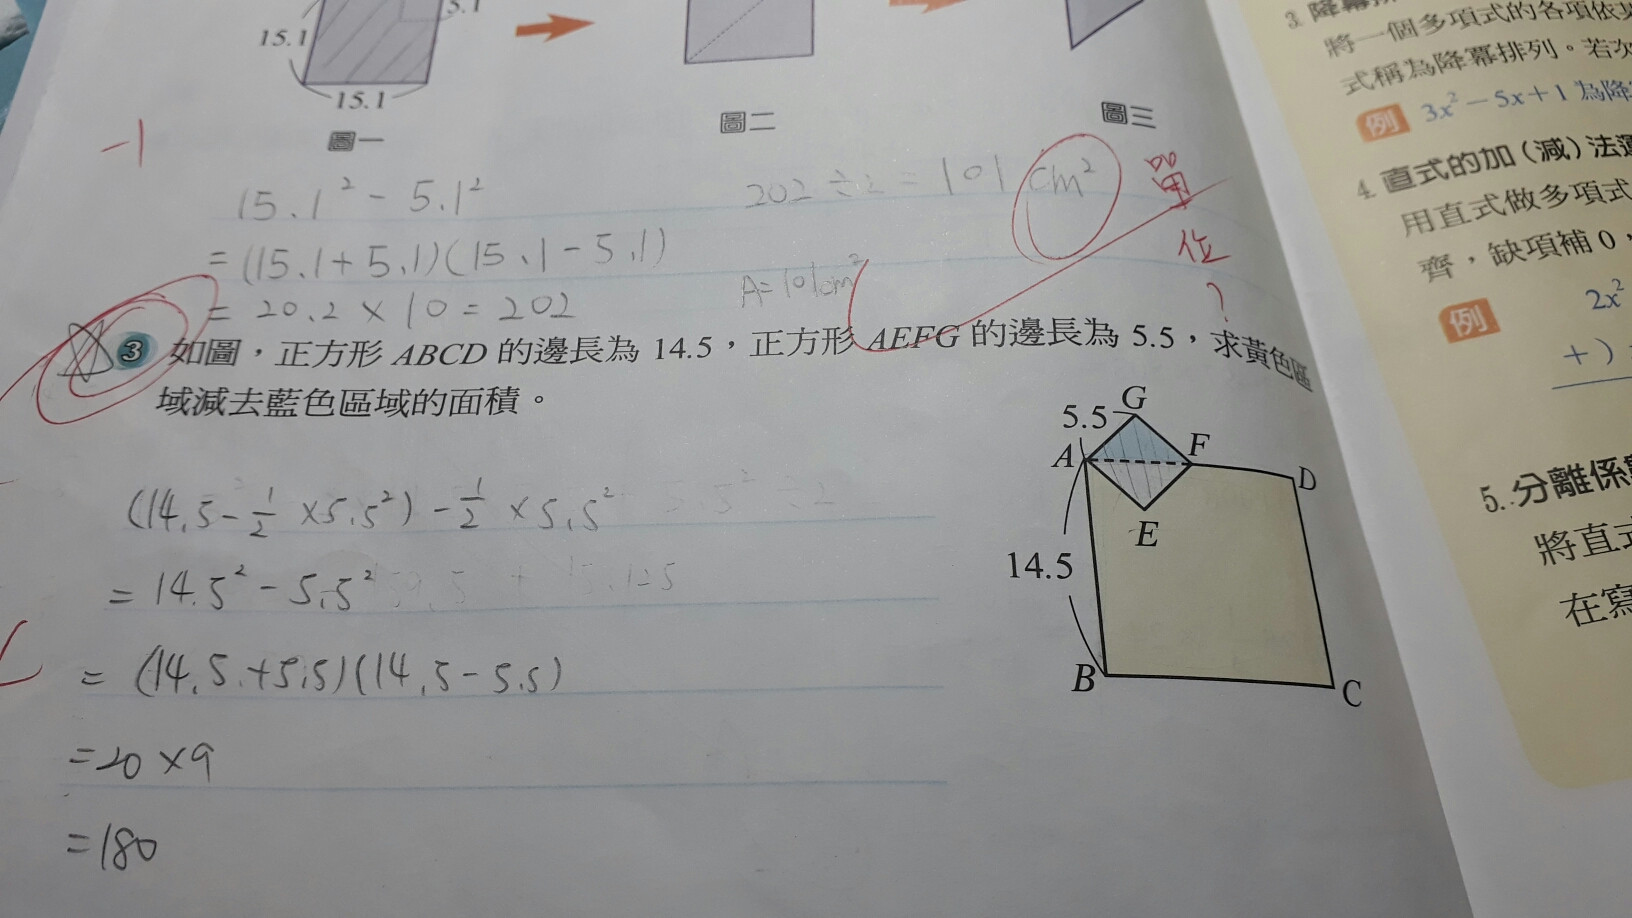 5.1
15.1
15.1
圖一
圖二
圖三
-1
15.1² - 5.1²
= (15.1+5.1)(15.1-5.1)
= 20.2 × 10 = 202
202 ÷ 2 = 101 cm²
A=101cm²
單
位
?
3 如圖，正方形 ABCD 的邊長為 14.5，正方形 AEFG 的邊長為 5.5，求黃色區
域減去藍色區域的面積。
(14.5-½ ×5.5²) -½ ×5.5²
= 14.5² - 5.5²
= (14.5+5.5)(14.5-5.5)
=20×9
=180
G
5.5
A
F
D
E
14.5
B
C
3. 降冪排
將一個多項式的各項依
式稱為降冪排列。若次
例 3x²-5x+1 為降
4. 直式的加(減)法
用直式做多項式
齊，缺項補0，
例 2x²
+)
5. 分離係
將直式
在寫